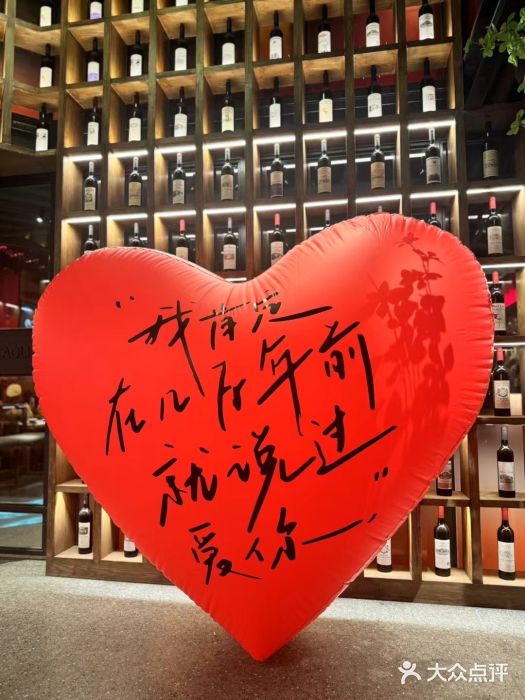 “我肯定
在几百年前
就说过
爱你—.”
大众点评